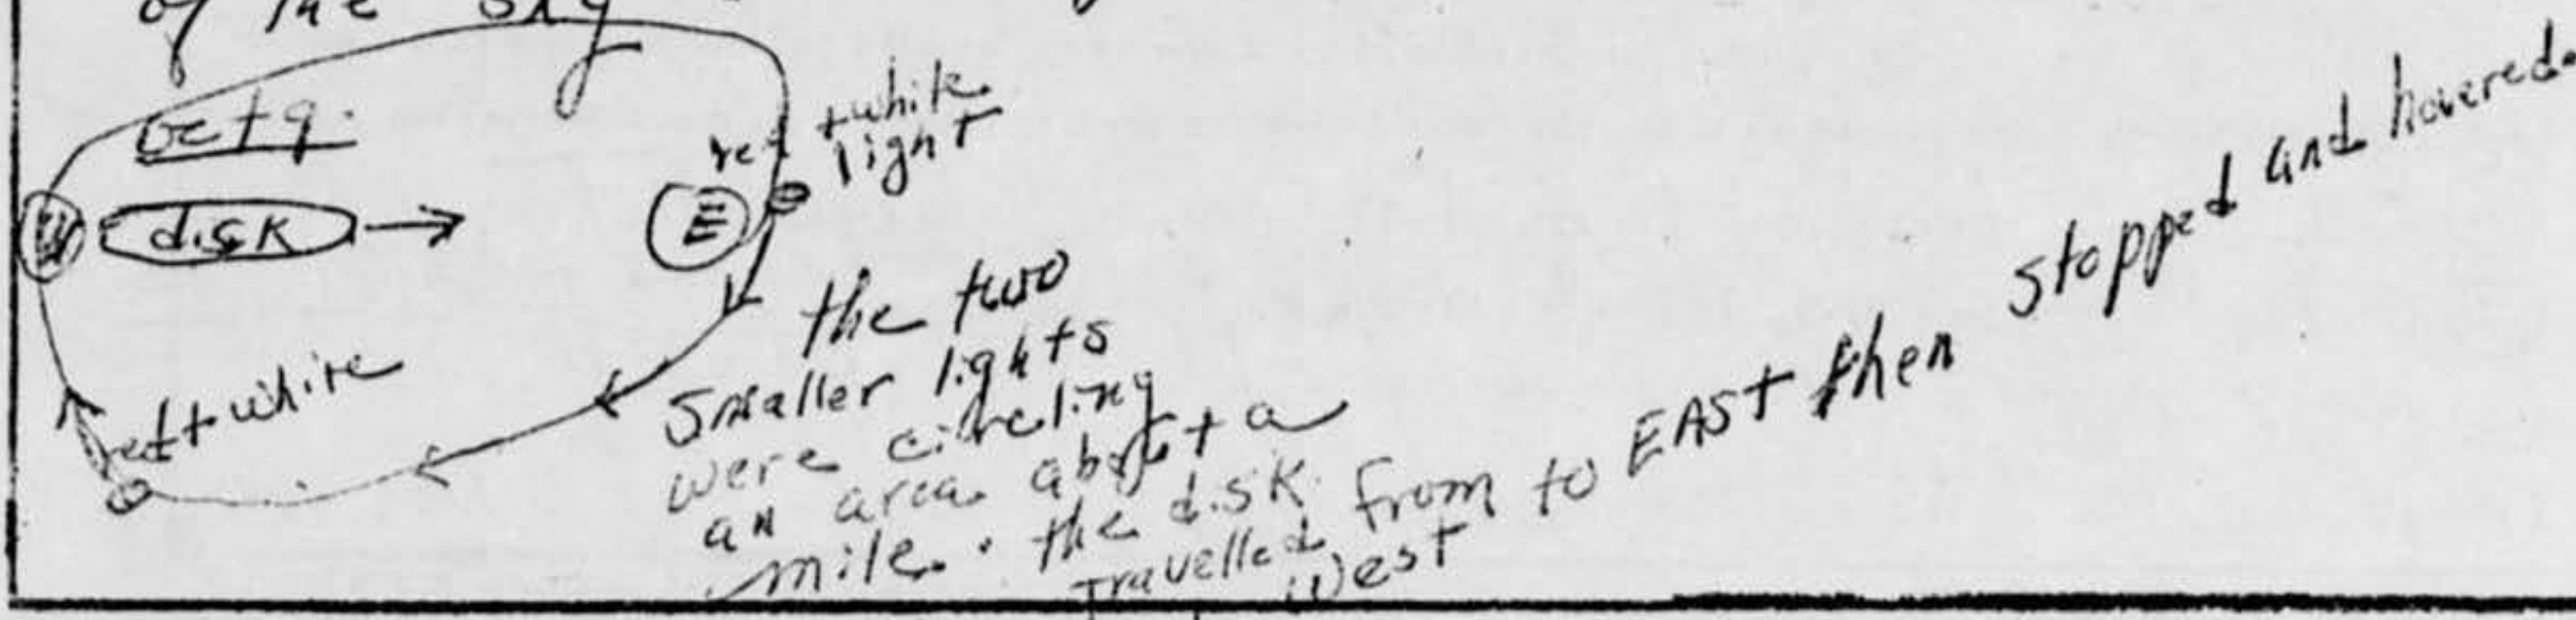 of the sky
oct 9.
red + white light
W disk → E
the two
smaller lights
were circling
an area about a
mile. the disk
travelled from West to EAST then stopped and hovered.
red + white